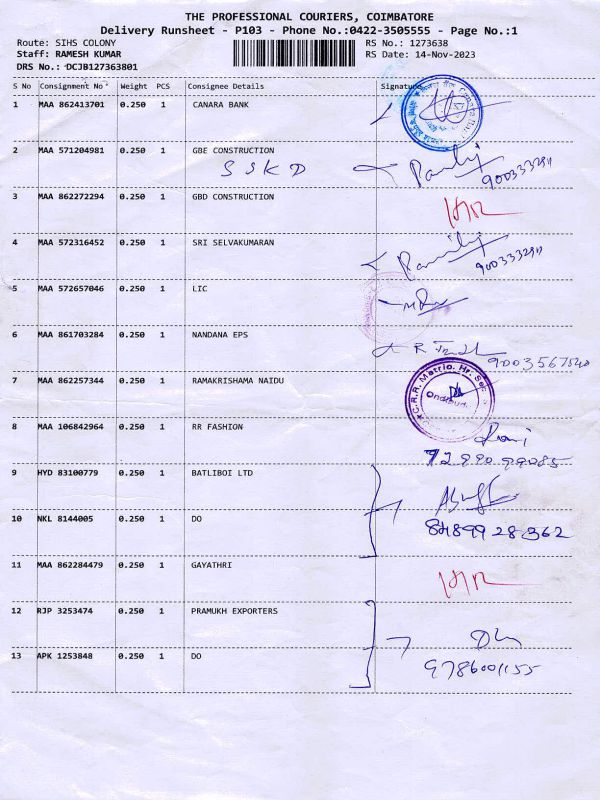 THE PROFESSIONAL COURIERS, COIMBATORE
Delivery Runsheet - P103 - Phone No.:0422-3505555 - Page No.:1
Route: SIHS COLONY RS No.: 1273638
Staff: RAMESH KUMAR RS Date: 14-Nov-2023
DRS No.: DCJB127363801
S No Consignment No Weight PCS Consignee Details Signature
1 MAA 862413701 0.250 1 CANARA BANK
2 MAA 571204981 0.250 1 GBE CONSTRUCTION
S S K D
900333291
3 MAA 862272294 0.250 1 GBD CONSTRUCTION
4 MAA 572316452 0.250 1 SRI SELVAKUMARAN
900333291
5 MAA 572657046 0.250 1 LIC
6 MAA 861703284 0.250 1 NANDANA EPS
9003567540
7 MAA 862257344 0.250 1 RAMAKRISHAMA NAIDU
C.R.R. Matric. Hr. Sec
8 MAA 106842964 0.250 1 RR FASHION
Rani
7299099085
9 HYD 83100779 0.250 1 BATLIBOI LTD
10 NKL 8144005 0.250 1 DO
8489928362
11 MAA 862284479 0.250 1 GAYATHRI
12 RJP 3253474 0.250 1 PRAMUKH EXPORTERS
13 APK 1253848 0.250 1 DO
9786001155